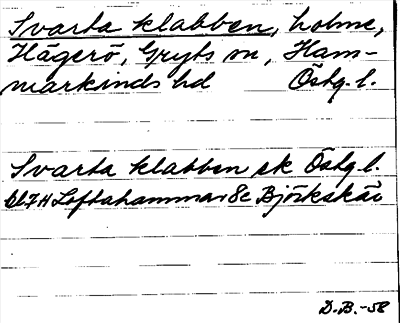 Svarta klabben, holme,
Hägerö, Gryts sn, Ham-
markinds hd Östg. l.
Svarta klabben sk Östg l.
bl 7H Loftahammar 8c Björkskär
D.B.-58